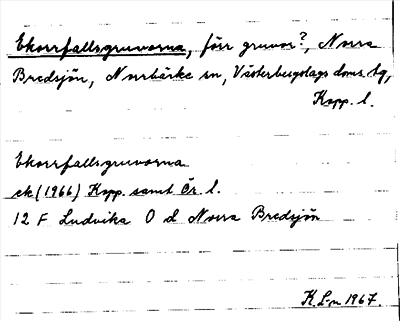 Ekorrfallsgruvorna, förr gruvor?, Norra
Bredsjön, Norrbärke sn, Västerbergslags doms. tg,
Kopp. l.
Ekorrfallsgruvorna
ek (1966) Kopp. samt Ör l.
12 F Ludvika O d Norra Bredsjön
K.L-m 1967.